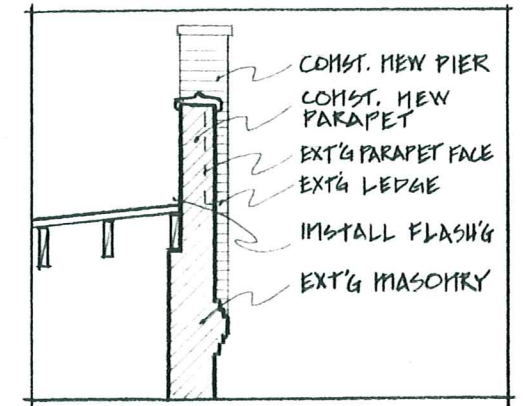 CONST. NEW PIER
CONST. NEW
PARAPET
EXT'G PARAPET FACE
EXT'G LEDGE
INSTALL FLASH'G
EXT'G MASONRY